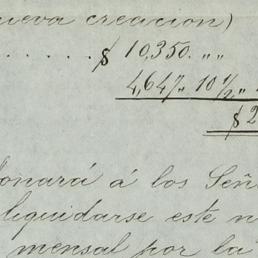 nueva creacion)
. . . . . . $ 10,350. „ „
4,647 „ 10 1/2 „
$ 2
onará á los Señ
liquidarse este n
mensal por la